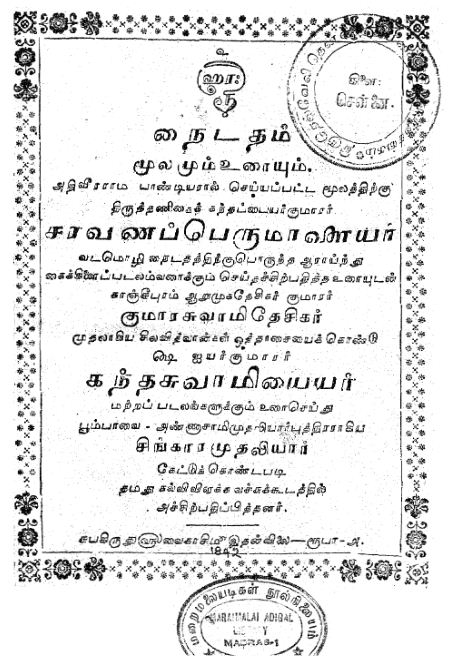 ஹரிஃ
நைடதம்
மூலமும்உரையும்.
அதிவீரராம பாண்டியரால் செய்யப்பட்ட மூலத்திற்கு
திருத்தணிகைக் கந்தப்பையர்குமாரர்
சரவணப்பெருமாளையர்
வடமொழி நைடதத்திற்குபொருந்த ஆராய்ந்து
கைக்கிளைப்படலம்வரைக்கும் செய்தச்சிற்பதித்த உரையுடன்
காஞ்சீபுரம் ஆறுமுகதேசிகர் குமாரர்
குமாரசுவாமிதேசிகர்
முதலாகிய சிலவித்வான்கள் ஒத்தாசையைக் கொண்டு
ஷை ஐயர்குமாரர்
கந்தசுவாமியையர்
மற்றப் படலங்களுக்கும் உரைசெய்து
பூம்பாவை - அண்ணாசாமிமுதலியார்புத்திரராகிய
சிங்காரமுதலியார்
கேட்டுக் கொண்டபடி
தமது கல்விவிளக்க வச்சுக்கூடத்தில்
அச்சிற்பதிப்பித்தனர்.
சுபகிருது௵வைகாசி௴ இதன்விலை—ரூபா-௮.
1842
சென்னை.
மறைமலையடிகள் நூல்நிலையம்
MARAIMALAI ADIGAL
LIBRARY
MADRAS-1